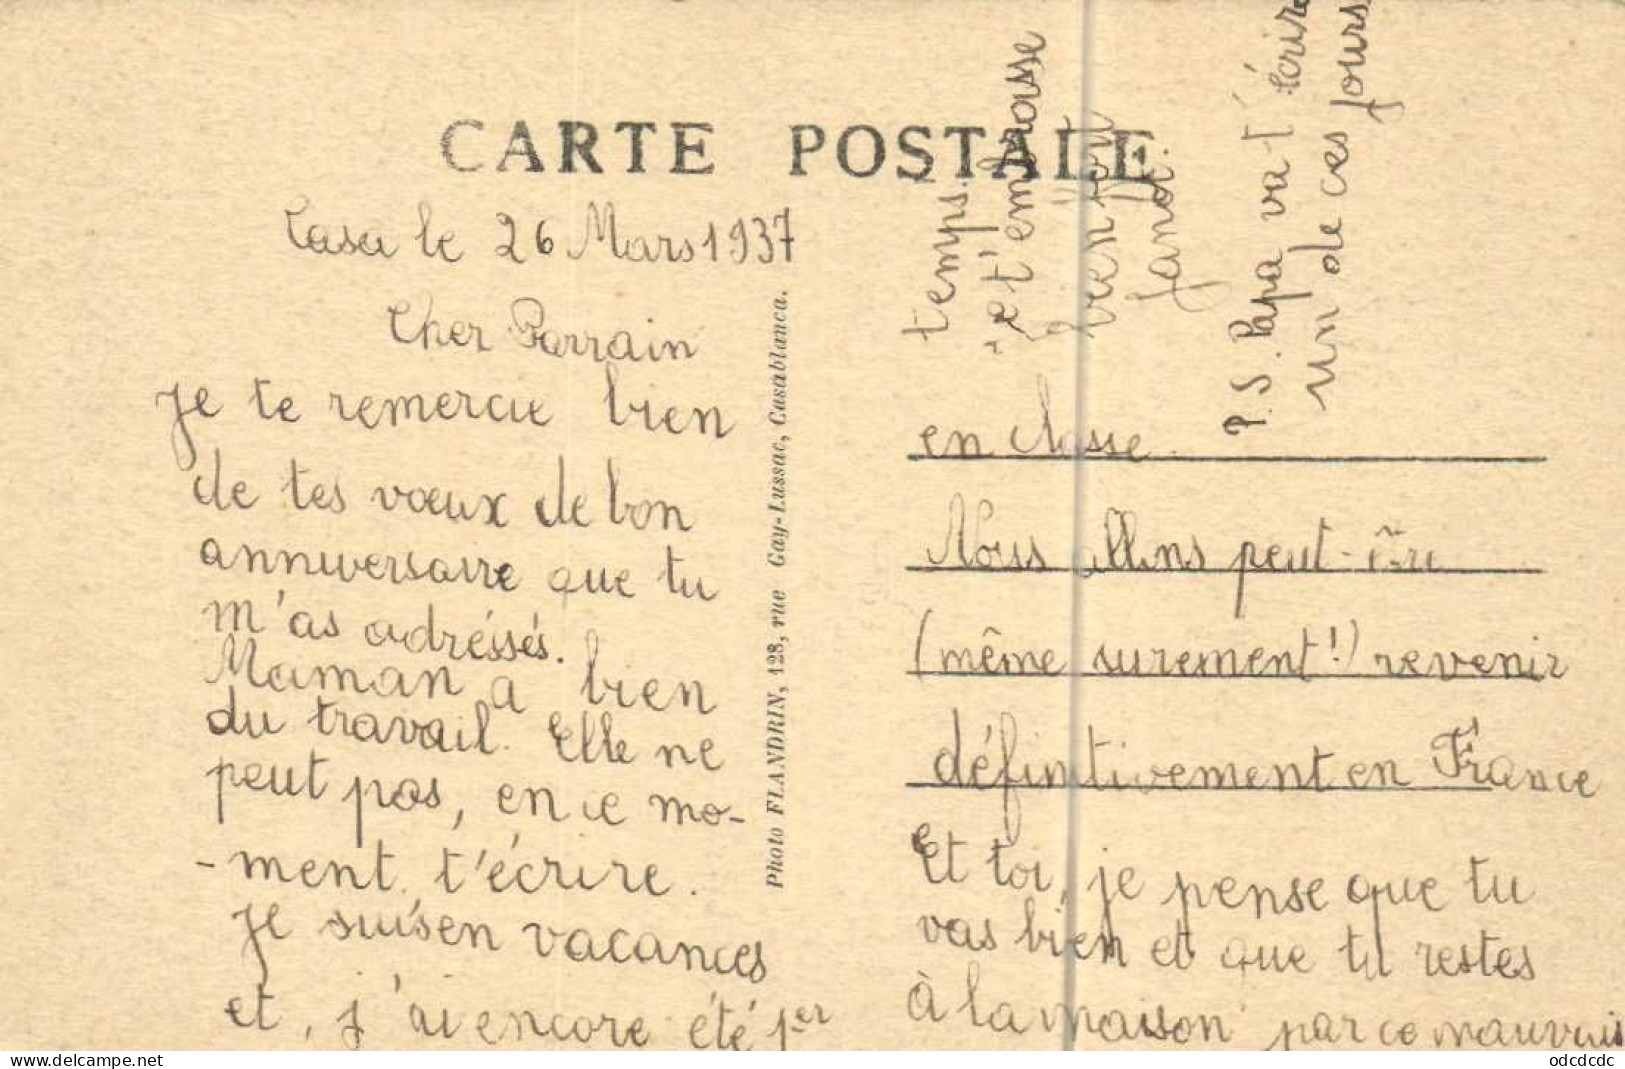 CARTE POSTALE
Casa le 26 Mars 1937
Cher Parrain
Je te remercie bien
de tes vœux de bon
anniversaire que tu
m'as adréssés.
Maman a bien
du travail. Elle ne
peut pas, en ce mo-
-ment t'écrire.
Je suis en vacances
et, j'ai encore été 1er
en classe.
Nous allons peut-être
(même surement!) revenir
définitivement en France
Et toi, je pense que tu
vas bien et que tu restes
à la maison par ce mauvais
temps.
je t'embrasse
bien fou
Janot.
P.S. Papa va t'écrire
un de ces jours
Photo FLANDRIN, 128, rue Gay-Lussac, Casablanca.
odcdcdc